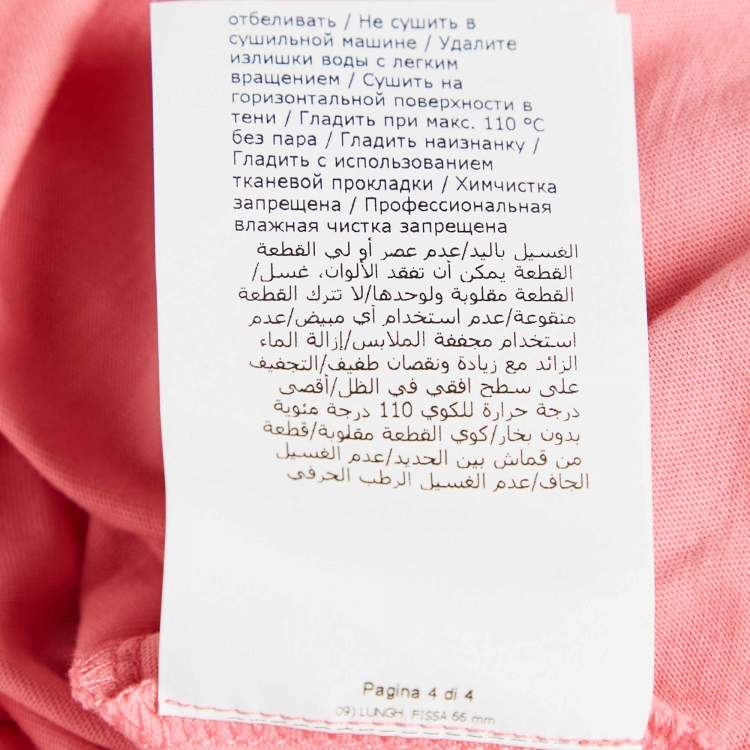 отбеливать / Не сушить в
сушильной машине / Удалите
излишки воды с легким
вращением / Сушить на
горизонтальной поверхности в
тени / Гладить при макс. 110 °C
без пара / Гладить наизнанку /
Гладить с использованием
тканевой прокладки / Химчистка
запрещена / Профессиональная
влажная чистка запрещена
الغسيل باليد/عدم عصر أو لي القطعة
القطعة يمكن أن تفقد الألوان، غسل/
القطعة مقلوبة ولوحدها/لا تترك القطعة
منقوعة/عدم استخدام أي مبيض/عدم
استخدام مجففة الملابس/إزالة الماء
الزائد مع زيادة ونقصان طفيف/التجفيف
على سطح افقي في الظل/أقصى
درجة حرارة للكوي 110 درجة مئوية
بدون بخار/كوي القطعة مقلوبة/قطعة
من قماش بين الحديد/عدم الغسيل
الجاف/عدم الغسيل الرطب الحرفي
Pagina 4 di 4
09) LUNGH. FISSA 66 mm